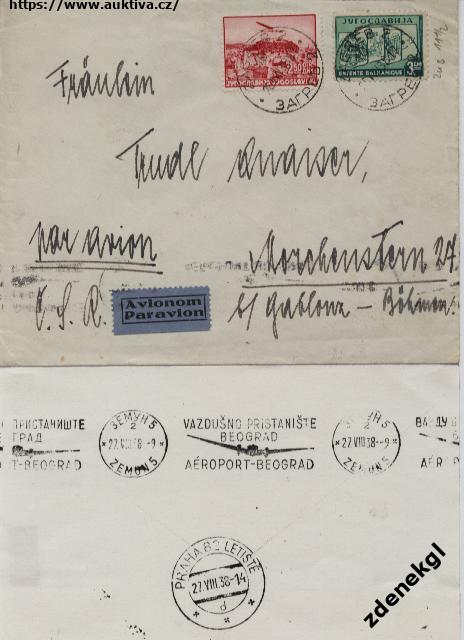 https://www.auktiva.cz/
ЈУГОСЛАВИЈА
ENTENTE BALKANIQUE
ЗАГРЕБ
ЗАГРЕБ
Fräulein
Trudl Knaiser,
par avion
Morchenstern 27
Č. S. R.
Avionom
Paravion
b/ Gablonz – Böhmen.
ПРИСТАНИШТЕ
ГРАД
T-BEOGRAD
ЗЕМУН 5
2
27.VIII 38 -9
ZEMUN 5
VAZDUŠNO PRISTANIŠTE
BEOGRAD
AÉROPORT-BEOGRAD
ЗЕМУН 5
2
27.VIII 38 -9
ZEMUN 5
ВАЗДУ
AÉR
PRAHA 82 LETIŠTĚ
27.VIII.38-14
zdenekgl